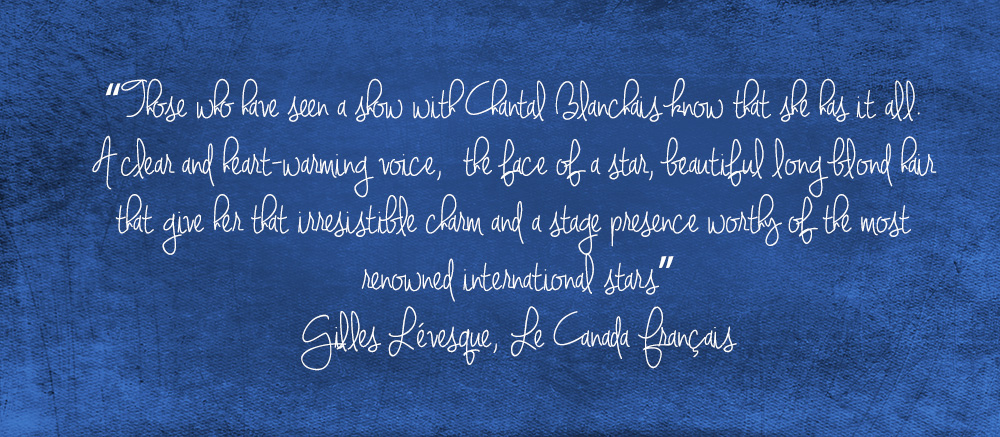 “Those who have seen a show with Chantal Blanchais know that she has it all.
A clear and heart-warming voice, the face of a star, beautiful long blond hair
that give her that irresistible charm and a stage presence worthy of the most
renowned international stars”
Gilles Lévesque, Le Canada Français